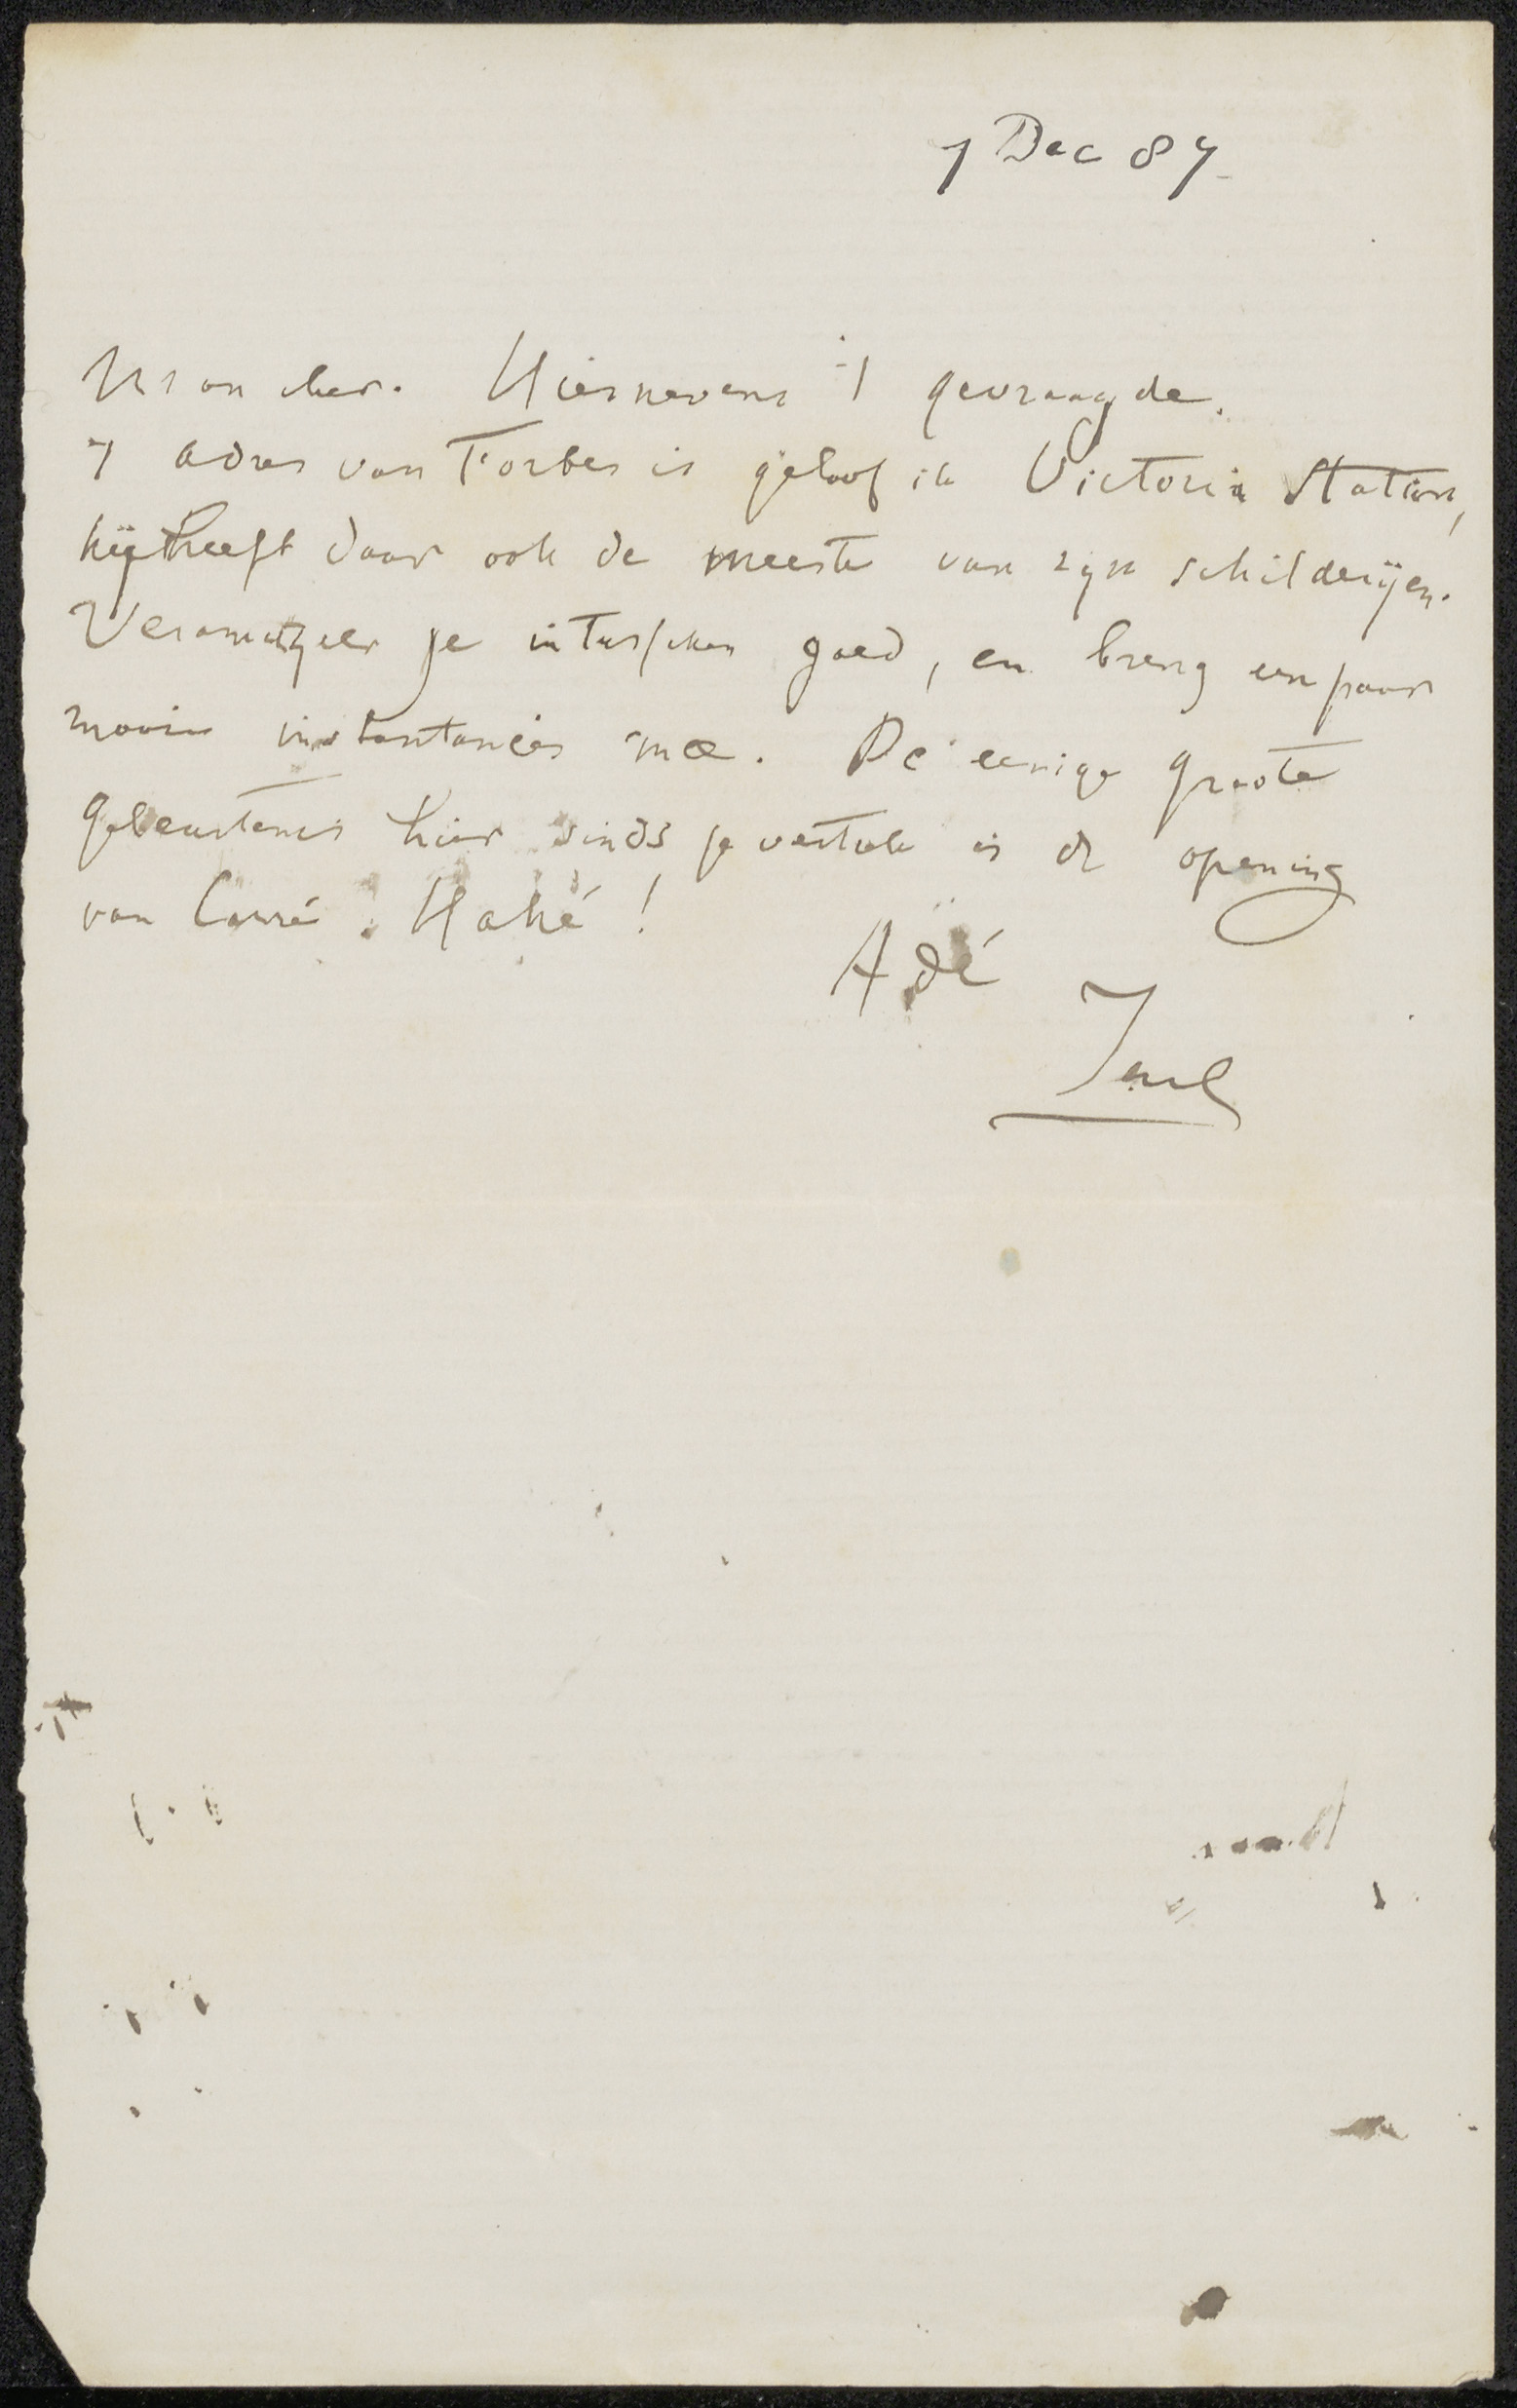 7 Dec 87
Mon cher. Hiernevens 't gevraagde.
't adres van Forbes is geloof ik Victoria Station,
hij heeft daar ook de meeste van zijn schilderijen.
Veramuzeer je intusschen goed, en breng een paar
mooie instantanées mee. De eenige groote
gebeurtenis hier sinds je vertrek is de opening
van Carré. Hahé!
Adé